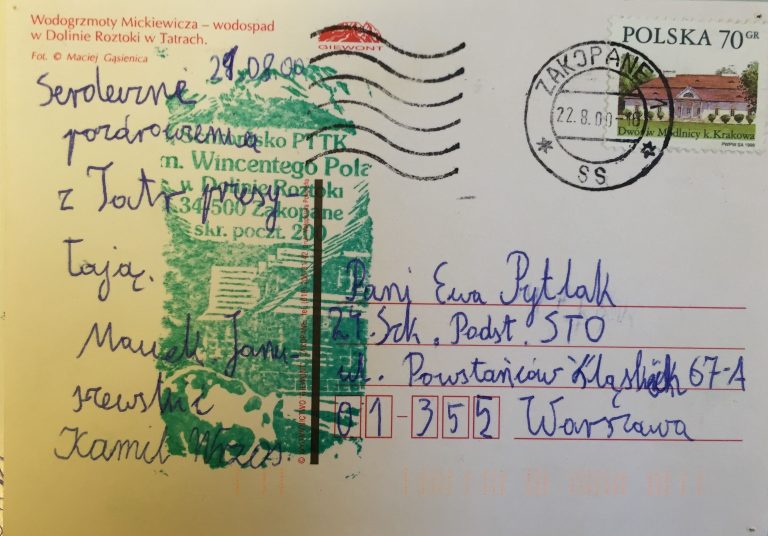 Wodogrzmoty Mickiewicza – wodospad
w Dolinie Roztoki w Tatrach.
Fot. © Maciej Gąsienica
GIEWONT
POLSKA 70 GR
Dwór w Modlnicy k. Krakowa
PWPW SA 1999
ZAKOPANE 1
22.8.00-18
SS
21.08.00
Serdeczne
pozdrowienia
z Tatr przesy-
łają.
Marek Janu-
szewski i
Kamil
Schronisko PTTK
im. Wincentego Pola
w Dolinie Roztoki
34-500 Zakopane
skr. poczt. 200
Pani Ewa Pytlak
24. Szk. Podst. STO
ul. Powstańców Śląskich 67-A
01-355 Warszawa